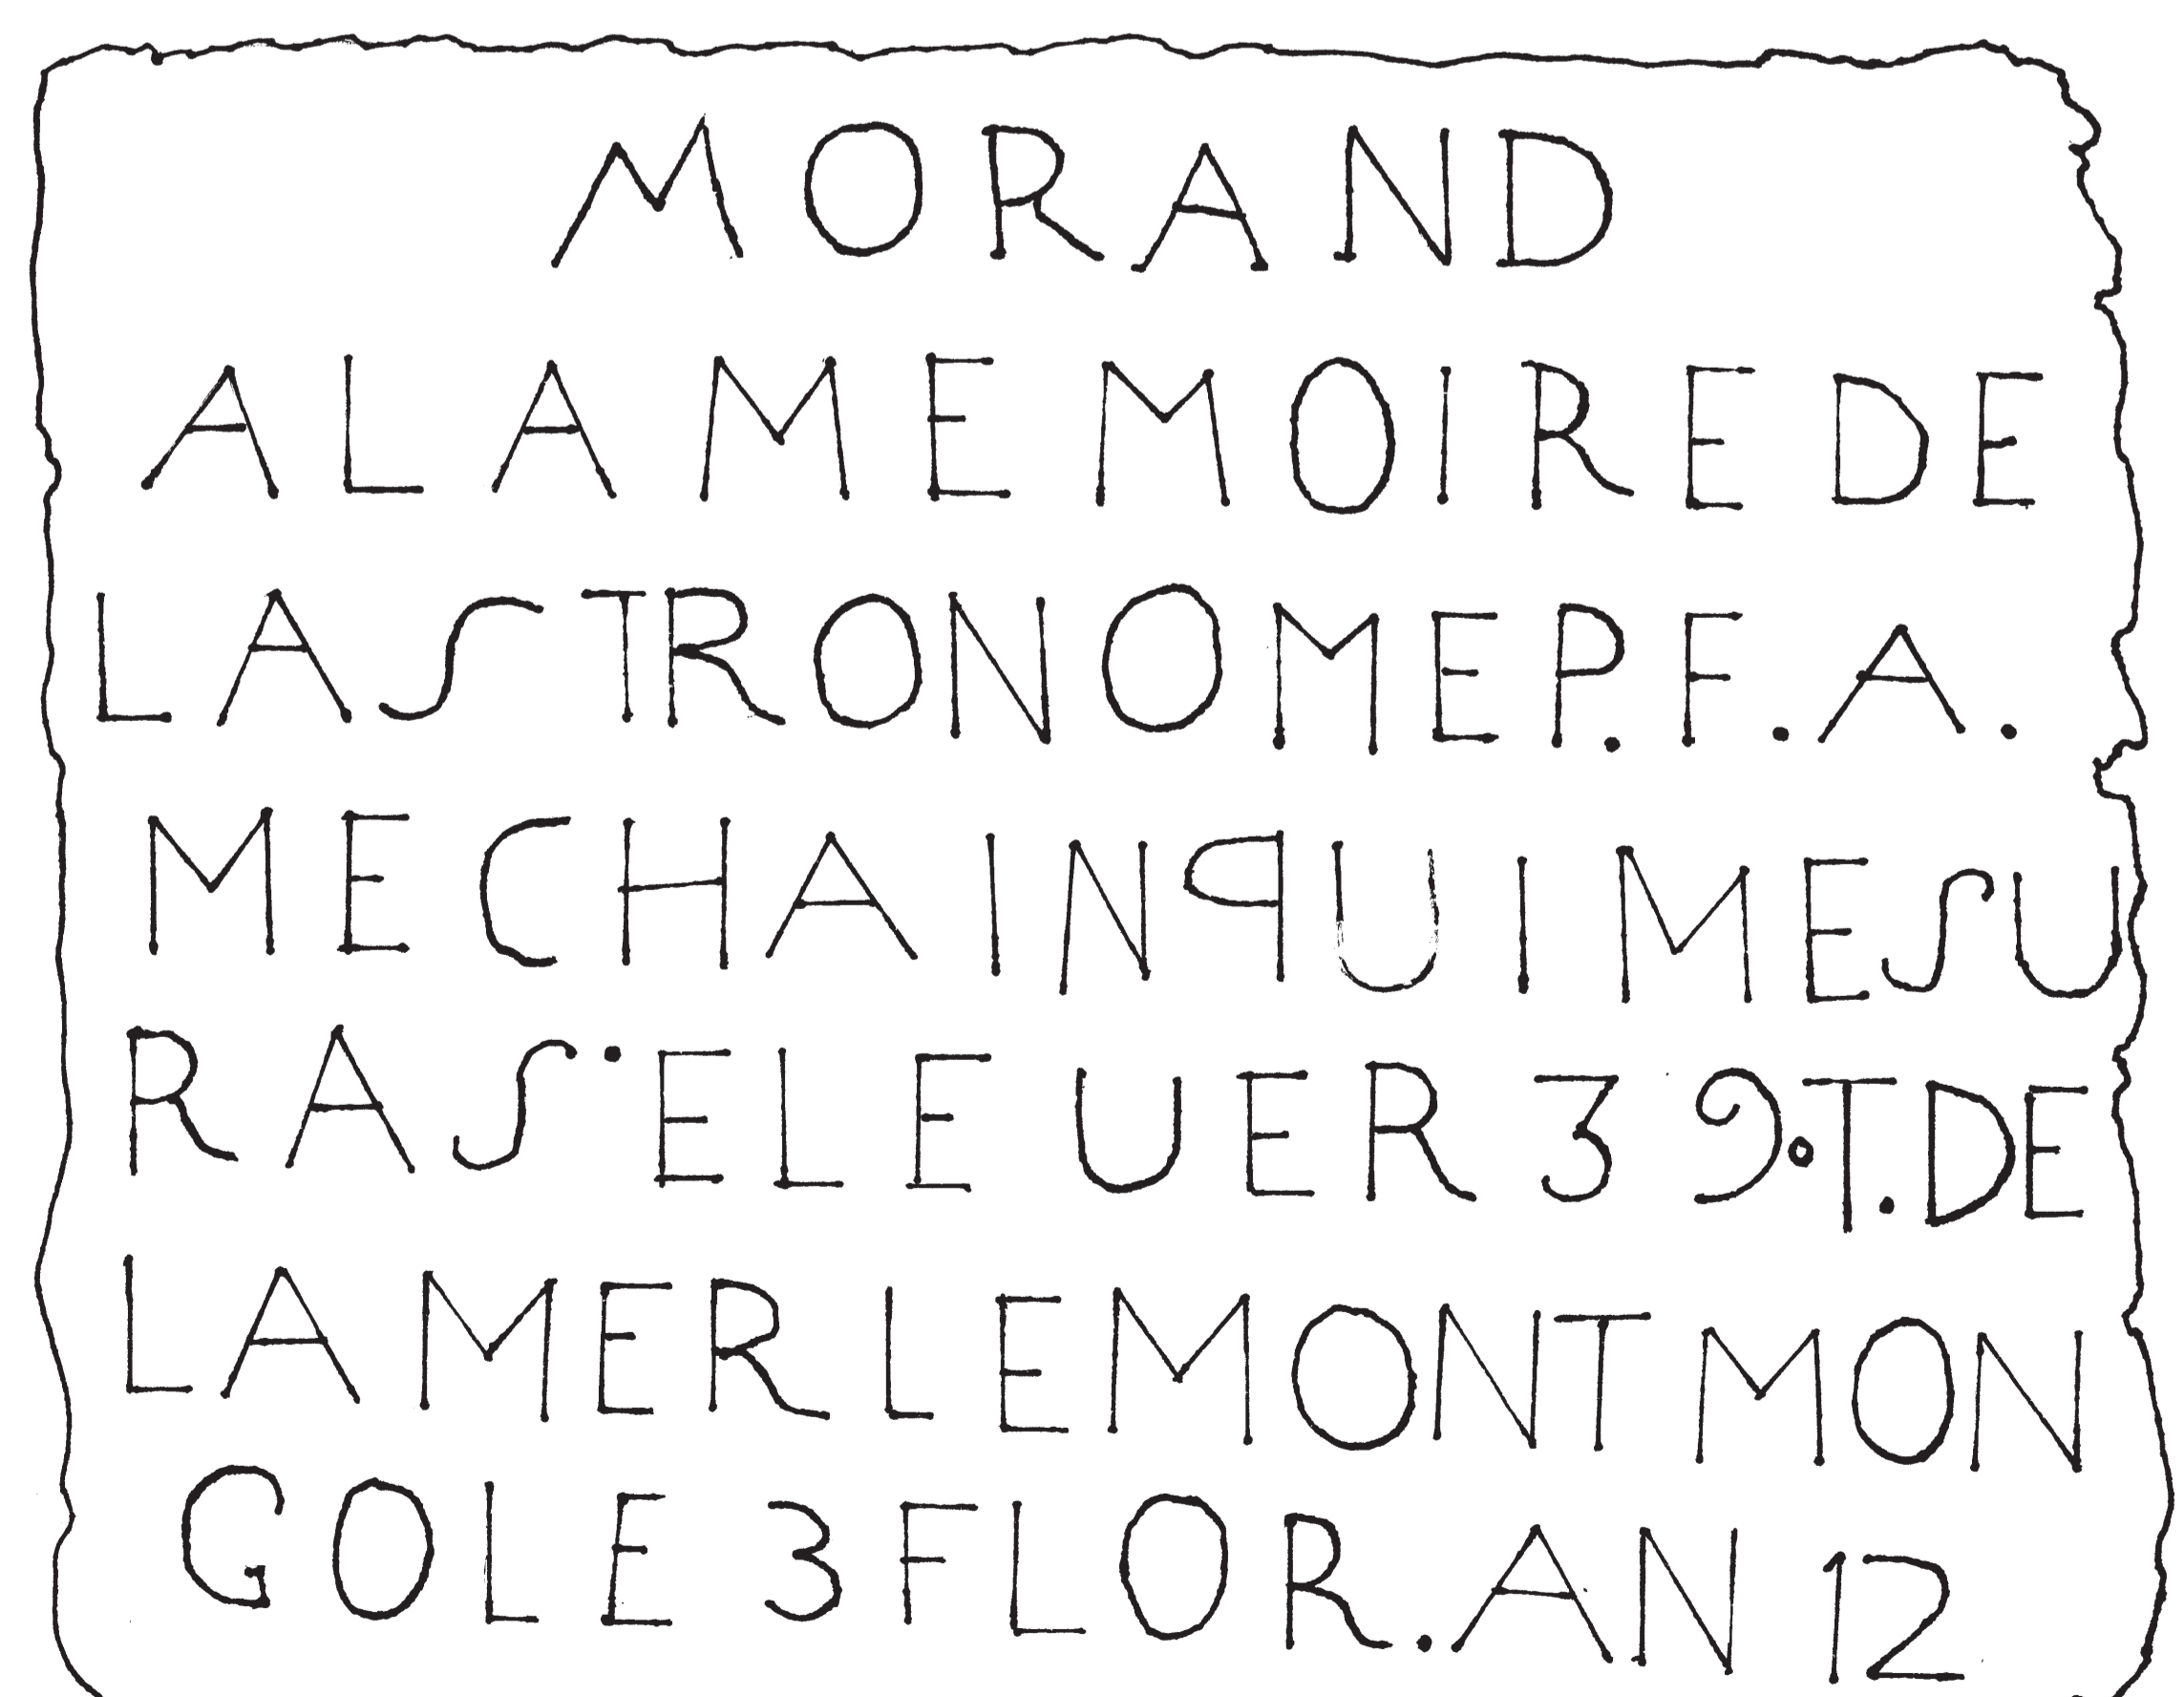 MORAND
ALAMEMOIREDE
LASTRONOMEP.F.A.
MECHAINqUIMESU
RAS·ELEUER39.T.DE
LAMERLEMONTMON
GOLE3FLOR.AN12